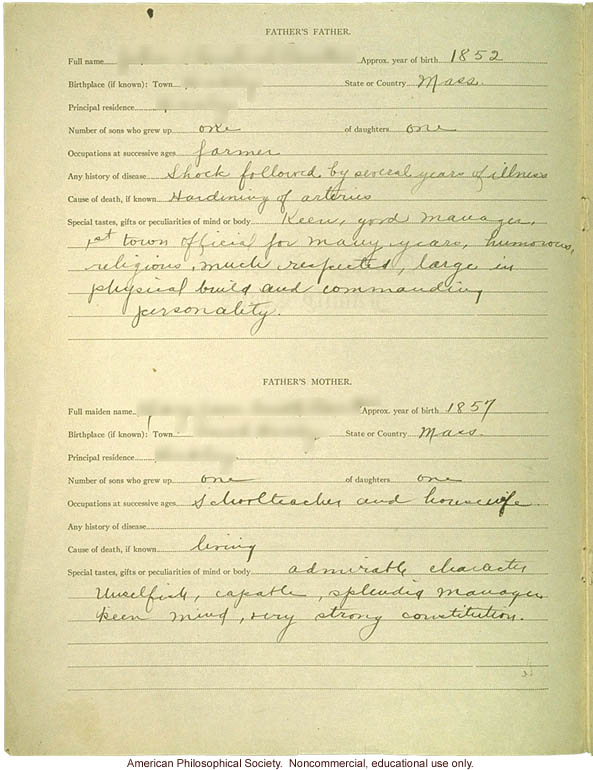 FATHER'S FATHER.
Full name Approx. year of birth 1852
Birthplace (if known): Town State or Country Mass.
Principal residence
Number of sons who grew up one of daughters one
Occupations at successive ages farmer
Any history of disease Shock followed by several years of illness
Cause of death, if known Hardening of arteries
Special tastes, gifts or peculiarities of mind or body Keen, good manager,
1st town official for many years, humorous,
religious, much respected, large in
physical build and commanding
personality.
FATHER'S MOTHER.
Full maiden name Approx. year of birth 1857
Birthplace (if known): Town State or Country Mass.
Principal residence
Number of sons who grew up one of daughters one
Occupations at successive ages Schoolteacher and housewife
Any history of disease
Cause of death, if known living
Special tastes, gifts or peculiarities of mind or body admirable character
Unselfish, capable, splendid manager
keen mind, very strong constitution.
American Philosophical Society. Noncommercial, educational use only.